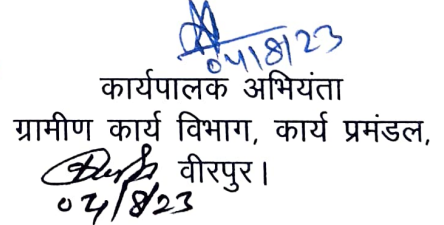 04/8/23
कार्यपालक अभियंता
ग्रामीण कार्य विभाग, कार्य प्रमंडल,
वीरपुर।
04/8/23